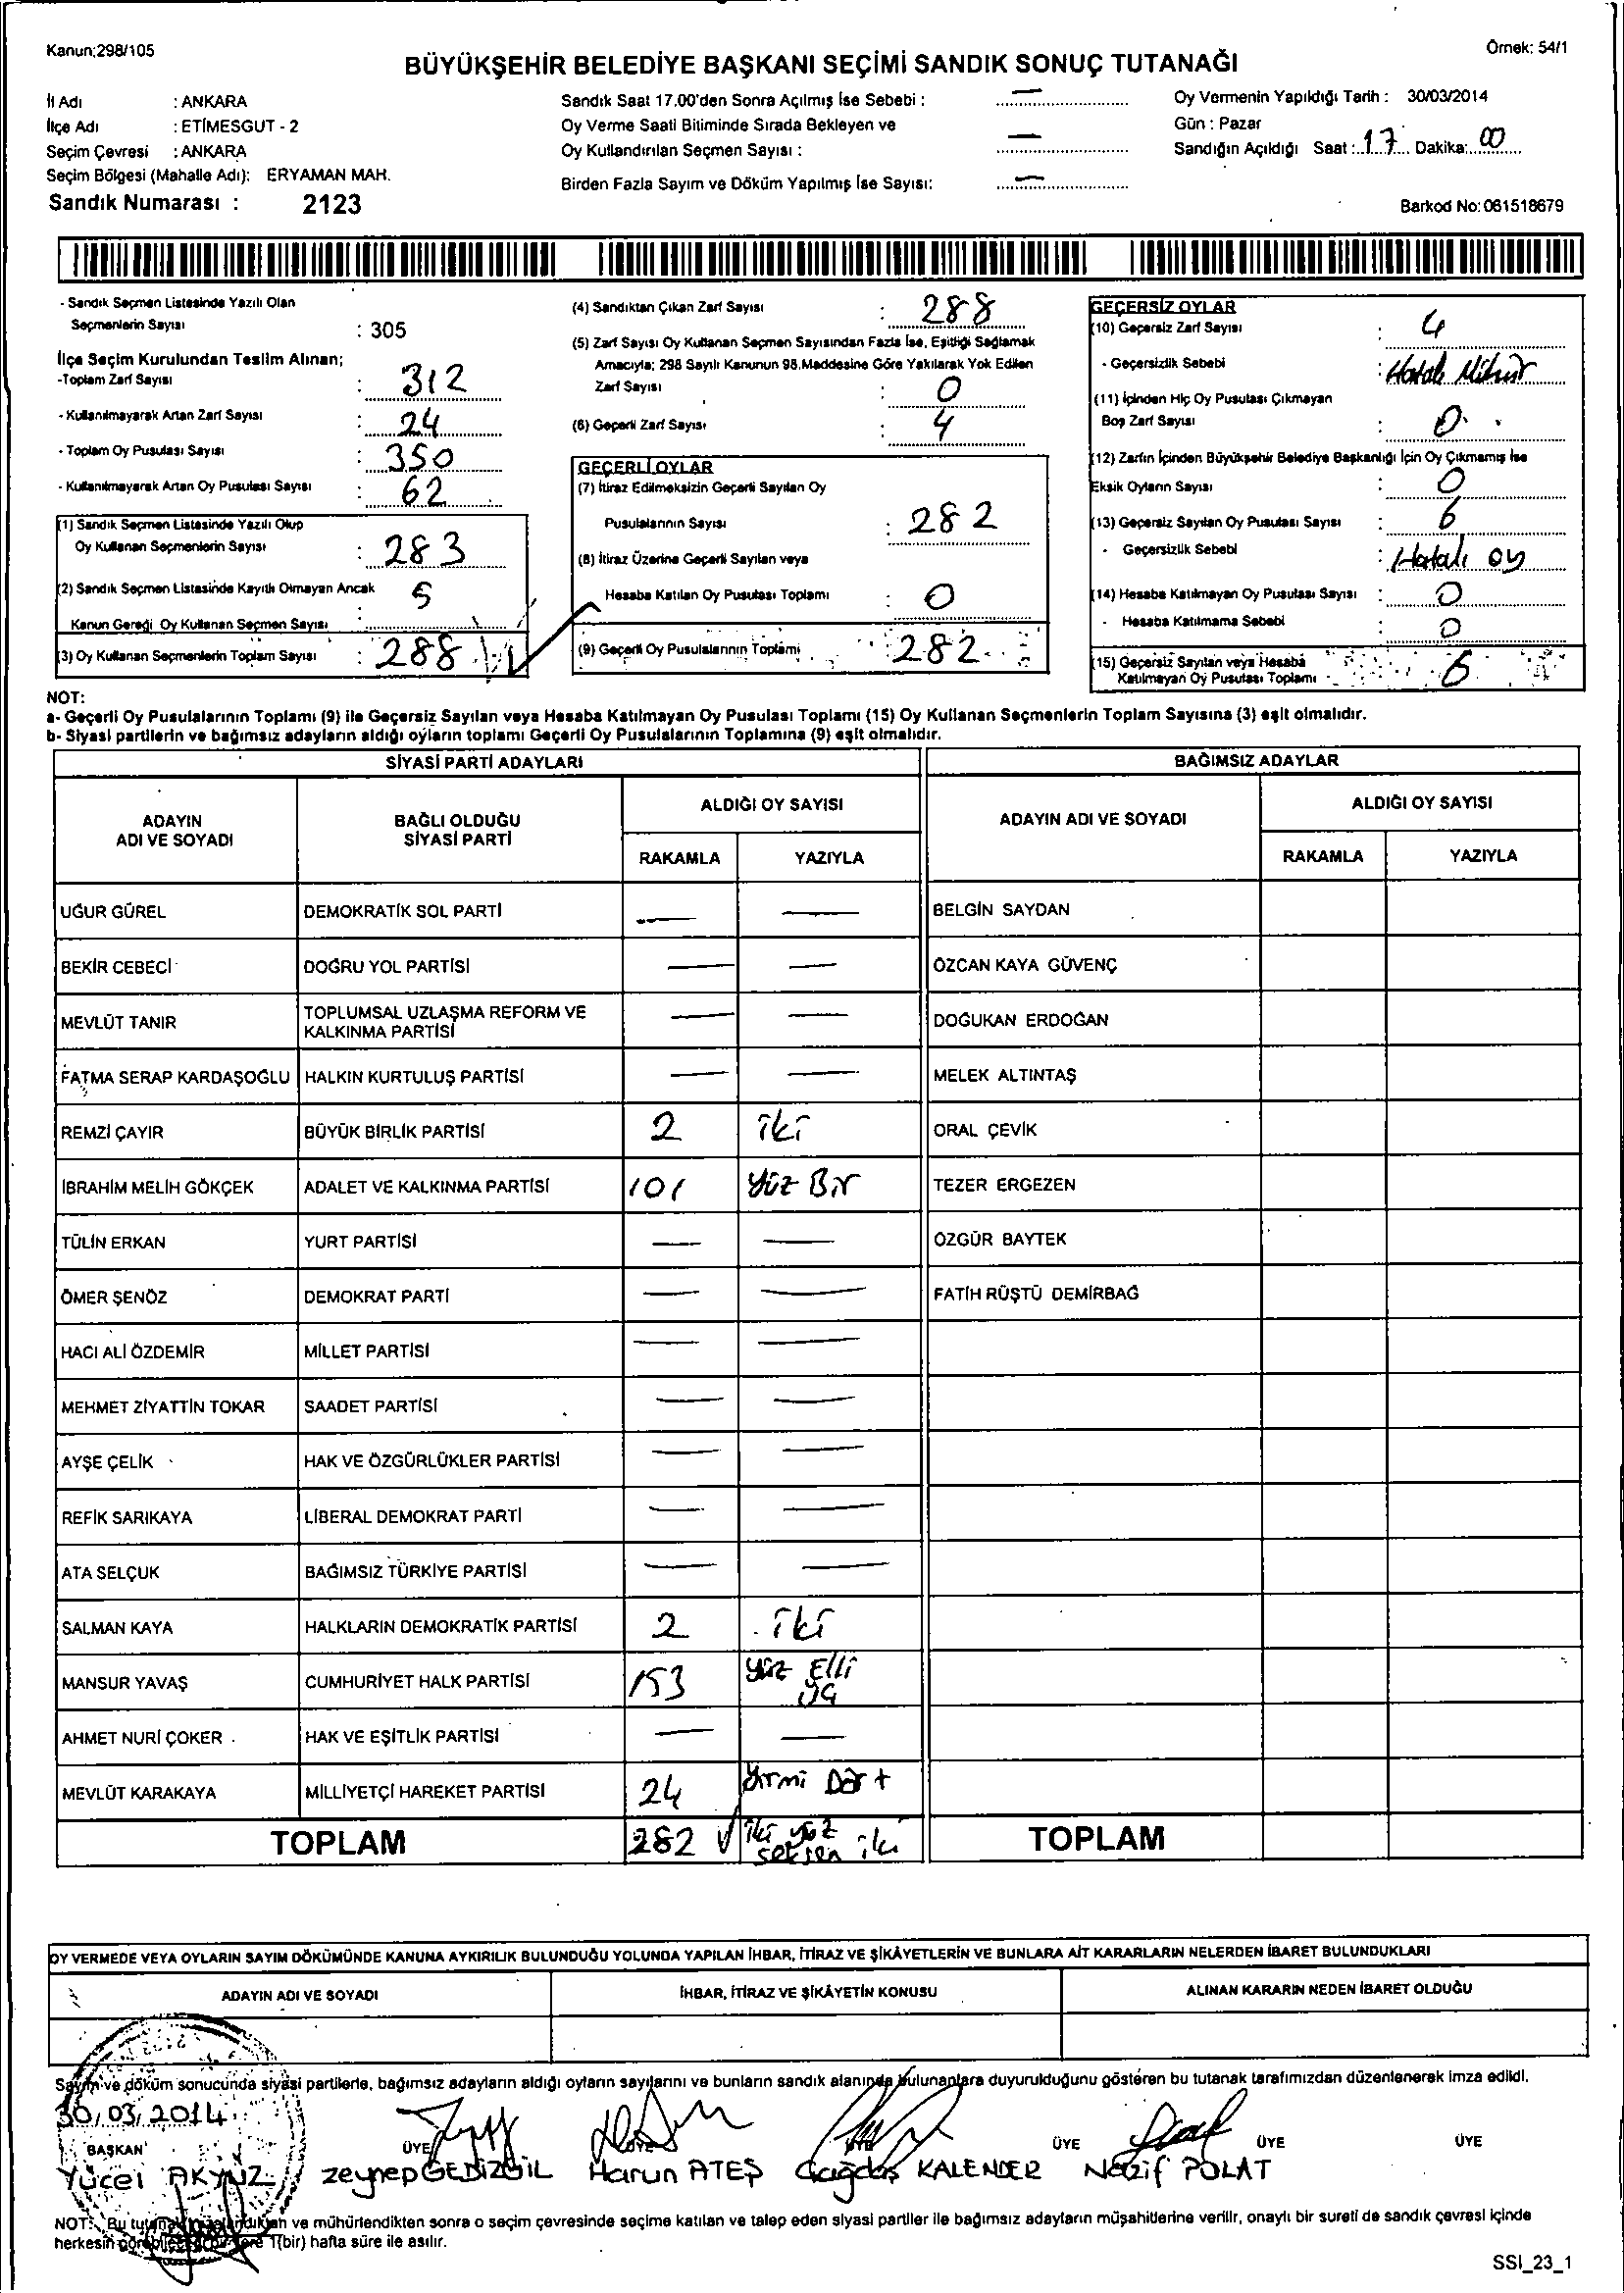 Kanun;298/105
Örnek: 54/1
BÜYÜKŞEHİR BELEDİYE BAŞKANI SEÇİMİ SANDIK SONUÇ TUTANAĞI
İl Adı : ANKARA
İlçe Adı : ETİMESGUT - 2
Seçim Çevresi : ANKARA
Seçim Bölgesi (Mahalle Adı): ERYAMAN MAH.
Sandık Numarası : 2123
Sandık Saat 17.00'den Sonra Açılmış İse Sebebi : —
Oy Verme Saati Bitiminde Sırada Bekleyen ve
Oy Kullandırılan Seçmen Sayısı : —
Birden Fazla Sayım ve Döküm Yapılmış İse Sayısı: —
Oy Vermenin Yapıldığı Tarih : 30/03/2014
Gün : Pazar
Sandığın Açıldığı Saat : 17 Dakika: 00
Barkod No: 061518679
- Sandık Seçmen Listesinde Yazılı Olan
Seçmenlerin Sayısı : 305
İlçe Seçim Kurulundan Teslim Alınan;
-Toplam Zarf Sayısı : 312
- Kullanılmayarak Artan Zarf Sayısı : 24
- Toplam Oy Pusulası Sayısı : 350
- Kullanılmayarak Artan Oy Pusulası Sayısı : 62
(1) Sandık Seçmen Listesinde Yazılı Olup
Oy Kullanan Seçmenlerin Sayısı : 283
(2) Sandık Seçmen Listesinde Kayıtlı Olmayan Ancak
Kanun Gereği Oy Kullanan Seçmen Sayısı : 5
(3) Oy Kullanan Seçmenlerin Toplam Sayısı : 288
(4) Sandıktan Çıkan Zarf Sayısı : 288
(5) Zarf Sayısı Oy Kullanan Seçmen Sayısından Fazla İse, Eşitliği Sağlamak
Amacıyla; 298 Sayılı Kanunun 98.Maddesine Göre Yakılarak Yok Edilen
Zarf Sayısı : 0
(6) Geçerli Zarf Sayısı : 4
GEÇERLİ OYLAR
(7) İtiraz Edilmeksizin Geçerli Sayılan Oy
Pusulalarının Sayısı : 282
(8) İtiraz Üzerine Geçerli Sayılan veya
Hesaba Katılan Oy Pusulası Toplamı : 0
(9) Geçerli Oy Pusulalarının Toplamı : 282
GEÇERSİZ OYLAR
(10) Geçersiz Zarf Sayısı : 4
- Geçersizlik Sebebi : Hatalı Mühür
(11) İçinden Hiç Oy Pusulası Çıkmayan
Boş Zarf Sayısı : 0
(12) Zarfın İçinden Büyükşehir Belediye Başkanlığı İçin Oy Çıkmamış İse
Eksik Oyların Sayısı : 0
(13) Geçersiz Sayılan Oy Pusulası Sayısı : 6
- Geçersizlik Sebebi : Hatalı oy
(14) Hesaba Katılmayan Oy Pusulası Sayısı : 0
- Hesaba Katılmama Sebebi : 0
(15) Geçersiz Sayılan veya Hesaba
Katılmayan Oy Pusulası Toplamı : 6
NOT:
a- Geçerli Oy Pusulalarının Toplamı (9) ile Geçersiz Sayılan veya Hesaba Katılmayan Oy Pusulası Toplamı (15) Oy Kullanan Seçmenlerin Toplam Sayısına (3) eşit olmalıdır.
b- Siyasi partilerin ve bağımsız adayların aldığı oyların toplamı Geçerli Oy Pusulalarının Toplamına (9) eşit olmalıdır.
SİYASİ PARTİ ADAYLARI BAĞIMSIZ ADAYLAR
ADAYIN ADI VE SOYADI BAĞLI OLDUĞU SİYASİ PARTİ ALDIĞI OY SAYISI ADAYIN ADI VE SOYADI ALDIĞI OY SAYISI
RAKAMLA YAZIYLA RAKAMLA YAZIYLA
UĞUR GÜREL DEMOKRATİK SOL PARTİ — — BELGİN SAYDAN
BEKİR CEBECİ DOĞRU YOL PARTİSİ — — ÖZCAN KAYA GÜVENÇ
MEVLÜT TANIR TOPLUMSAL UZLAŞMA REFORM VE KALKINMA PARTİSİ — — DOĞUKAN ERDOĞAN
FATMA SERAP KARDAŞOĞLU HALKIN KURTULUŞ PARTİSİ — — MELEK ALTINTAŞ
REMZİ ÇAYIR BÜYÜK BİRLİK PARTİSİ 2 iki ORAL ÇEVİK
İBRAHİM MELİH GÖKÇEK ADALET VE KALKINMA PARTİSİ 101 Yüz Bir TEZER ERGEZEN
TÜLİN ERKAN YURT PARTİSİ — — ÖZGÜR BAYTEK
ÖMER ŞENÖZ DEMOKRAT PARTİ — — FATİH RÜŞTÜ DEMİRBAĞ
HACI ALİ ÖZDEMİR MİLLET PARTİSİ — —
MEHMET ZİYATTİN TOKAR SAADET PARTİSİ — —
AYŞE ÇELİK HAK VE ÖZGÜRLÜKLER PARTİSİ — —
REFİK SARIKAYA LİBERAL DEMOKRAT PARTİ — —
ATA SELÇUK BAĞIMSIZ TÜRKİYE PARTİSİ — —
SALMAN KAYA HALKLARIN DEMOKRATİK PARTİSİ 2 iki
MANSUR YAVAŞ CUMHURİYET HALK PARTİSİ 153 Yüz Elli üç
AHMET NURİ ÇOKER HAK VE EŞİTLİK PARTİSİ — —
MEVLÜT KARAKAYA MİLLİYETÇİ HAREKET PARTİSİ 24 Yirmi Dört
TOPLAM 282 iki yüz seksen iki TOPLAM
OY VERMEDE VEYA OYLARIN SAYIM DÖKÜMÜNDE KANUNA AYKIRILIK BULUNDUĞU YOLUNDA YAPILAN İHBAR, İTİRAZ VE ŞİKÂYETLERİN VE BUNLARA AİT KARARLARIN NELERDEN İBARET BULUNDUKLARI
ADAYIN ADI VE SOYADI İHBAR, İTİRAZ VE ŞİKÂYETİN KONUSU ALINAN KARARIN NEDEN İBARET OLDUĞU
Sayım ve döküm sonucunda siyasi partilerle, bağımsız adayların aldığı oyların sayılarını ve bunların sandık alanında bulunanlara duyurulduğunu gösteren bu tutanak tarafımızdan düzenlenerek imza edildi.
30/03/2014
BAŞKAN ÜYE ÜYE ÜYE ÜYE ÜYE ÜYE
Yücel AKYÜZ Zeynep GEDİZGİL Harun ATEŞ Çağdaş KALENDER Nazif POLAT
NOT: Bu ve mühürlendikten sonra o seçim çevresinde seçime katılan ve talep eden siyasi partiler ile bağımsız adayların müşahitlerine verilir, onaylı bir sureti de sandık çevresi içinde
herkesin 1(bir) hafta süre ile asılır.
SSI_23_1